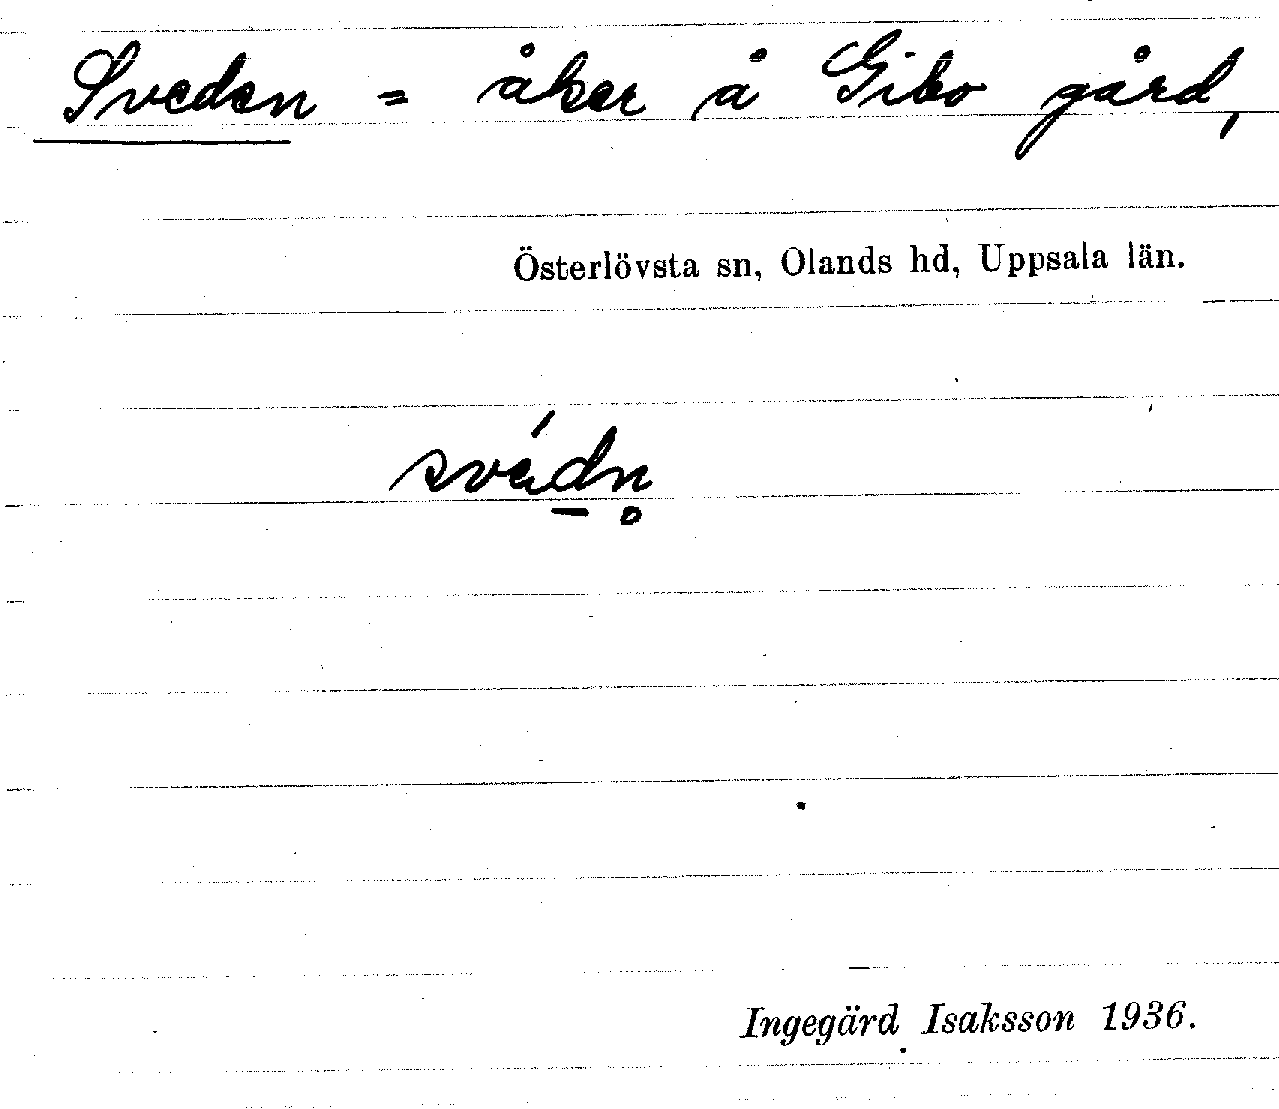 Sveden = åker å Gibo gård,
Österlövsta sn, Olands hd, Uppsala län.
svédn̥
Ingegärd Isaksson 1936.